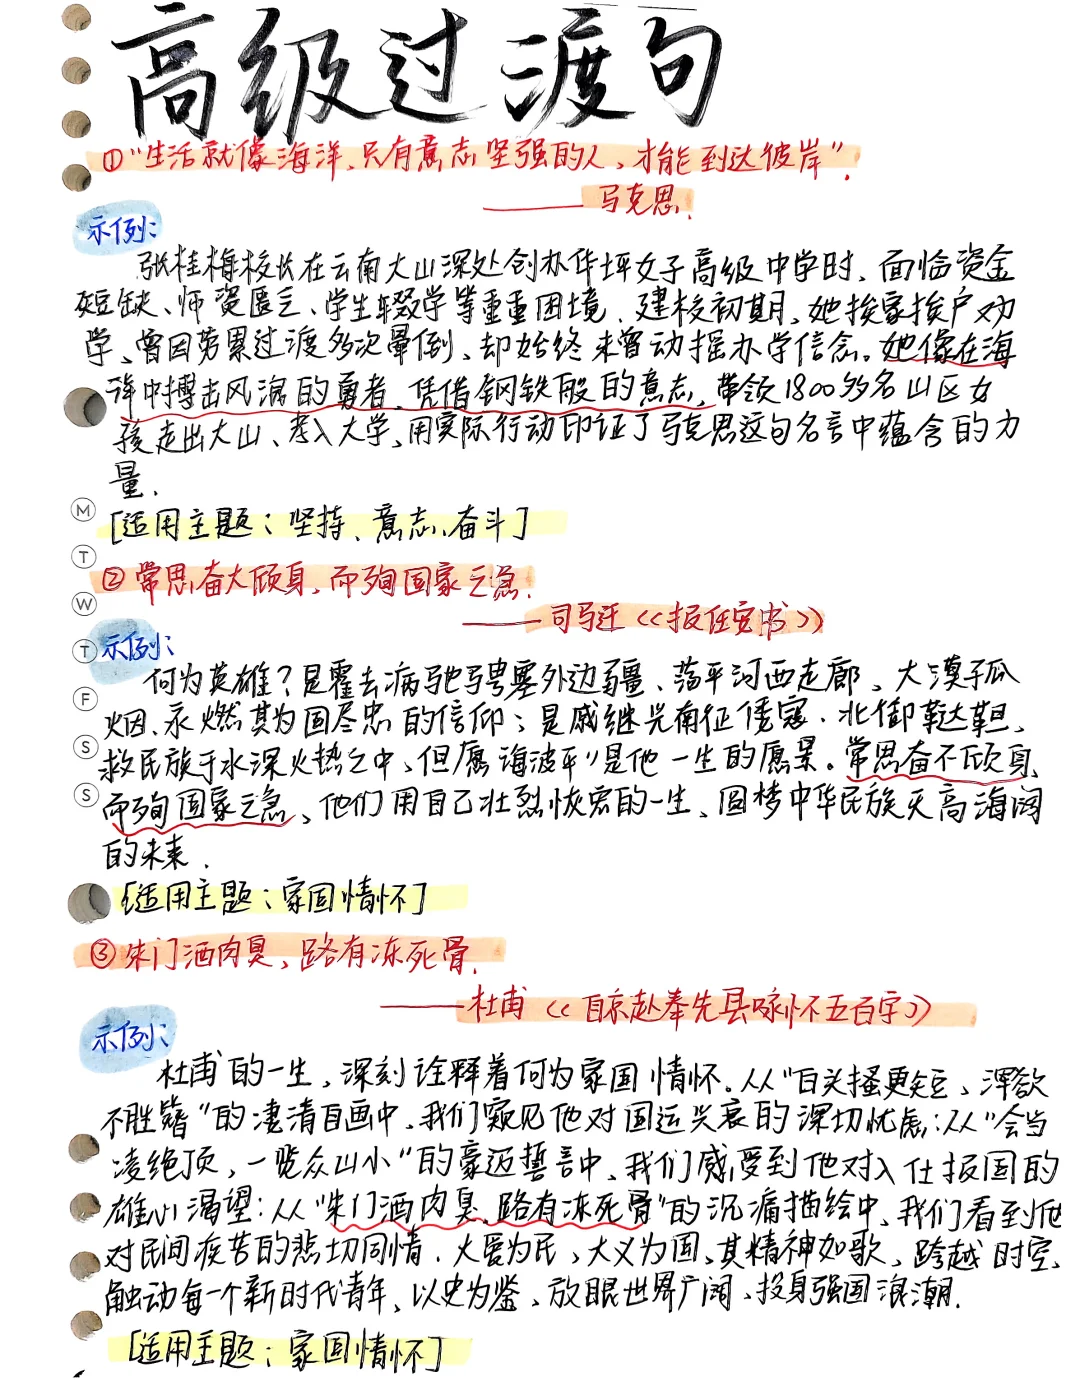 高级过渡句
①“生活就像海洋,只有意志坚强的人,才能到达彼岸”.
——马克思.
示例:
张桂梅校长在云南大山深处创办华坪女子高级中学时,面临资金
短缺、师资匮乏、学生辍学等重重困境.建校初期,她挨家挨户劝
学、曾因劳累过渡多次晕倒、却始终未曾动摇办学信念。她像在海
洋中搏击风浪的勇者,凭借钢铁般的意志,带领1800多名山区女
孩走出大山、考入大学,用实际行动印证了马克思这句名言中蕴含的力
量.
[适用主题:坚持、意志、奋斗]
②常思奋大顾身,而殉国家之急.
——司马迁《报任安书》
示例:
何为英雄?是霍去病驰骋塞外边疆、荡平河西走廊、大漠孤
烟、永燃其为国尽忠的信仰;是戚继光南征倭寇.北御鞑靼、
救民族于水深火热之中,但愿海波平”是他一生的愿景。常思奋不顾身,
而殉国家之急、他们用自己壮烈恢宏的一生、圆梦中华民族天高海阔
的未来.
[适用主题:家国情怀]
③朱门酒肉臭,路有冻死骨.
——杜甫《自京赴奉先县咏怀五百字》
示例:
杜甫的一生,深刻诠释着何为家国情怀。从“白头搔更短,浑欲
不胜簪”的凄清自画中,我们窥见他对国运兴衰的深切忧虑;从“会当
凌绝顶,一览众山小”的豪迈誓言中,我们感受到他对入仕报国的
雄心渴望:从“朱门酒肉臭,路有冻死骨”的沉痛描绘中,我们看到他
对民间疾苦的悲切同情.大爱为民,大义为国,其精神如歌,跨越时空,
触动每一个新时代青年,以史为鉴,放眼世界广阔,投身强国浪潮.
[适用主题:家国情怀]
M
T
W
T
F
S
S